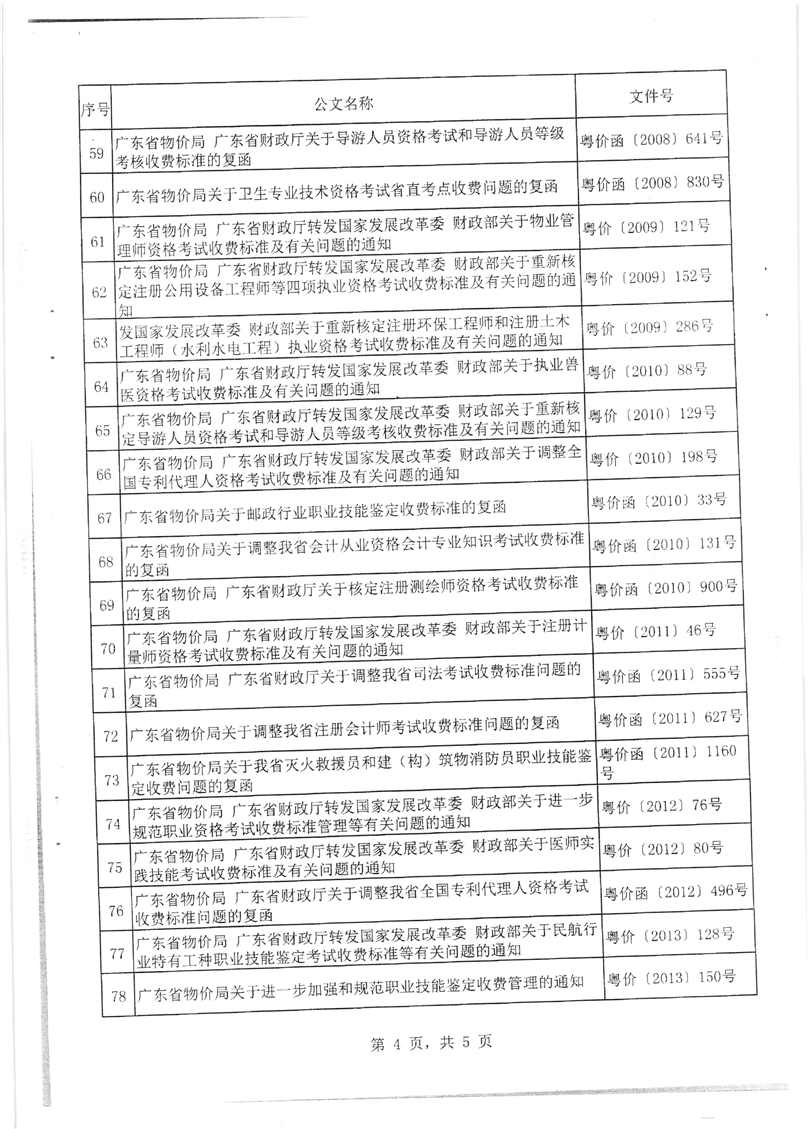 序号 公文名称 文件号
59 广东省物价局 广东省财政厅关于导游人员资格考试和导游人员等级 粤价函〔2008〕641号
考核收费标准的复函
60 广东省物价局关于卫生专业技术资格考试省直考点收费问题的复函 粤价函〔2008〕830号
61 广东省物价局 广东省财政厅转发国家发展改革委 财政部关于物业管 粤价〔2009〕121号
理师资格考试收费标准及有关问题的通知
62 广东省物价局 广东省财政厅转发国家发展改革委 财政部关于重新核 粤价〔2009〕152号
定注册公用设备工程师等四项执业资格考试收费标准及有关问题的通
知
63 发国家发展改革委 财政部关于重新核定注册环保工程师和注册土木 粤价〔2009〕286号
工程师（水利水电工程）执业资格考试收费标准及有关问题的通知
64 广东省物价局 广东省财政厅转发国家发展改革委 财政部关于执业兽 粤价〔2010〕88号
医资格考试收费标准及有关问题的通知
65 广东省物价局 广东省财政厅转发国家发展改革委 财政部关于重新核 粤价〔2010〕129号
定导游人员资格考试和导游人员等级考核收费标准及有关问题的通知
66 广东省物价局 广东省财政厅转发国家发展改革委 财政部关于调整全 粤价〔2010〕198号
国专利代理人资格考试收费标准及有关问题的通知
67 广东省物价局关于邮政行业职业技能鉴定收费标准的复函 粤价函〔2010〕33号
68 广东省物价局关于调整我省会计从业资格会计专业知识考试收费标准 粤价函〔2010〕131号
的复函
69 广东省物价局 广东省财政厅关于核定注册测绘师资格考试收费标准 粤价函〔2010〕900号
的复函
70 广东省物价局 广东省财政厅转发国家发展改革委 财政部关于注册计 粤价〔2011〕46号
量师资格考试收费标准及有关问题的通知
71 广东省物价局 广东省财政厅关于调整我省司法考试收费标准问题的 粤价函〔2011〕555号
复函
72 广东省物价局关于调整我省注册会计师考试收费标准问题的复函 粤价函〔2011〕627号
73 广东省物价局关于我省灭火救援员和建（构）筑物消防员职业技能鉴 粤价函〔2011〕1160
定收费问题的复函 号
74 广东省物价局 广东省财政厅转发国家发展改革委 财政部关于进一步 粤价〔2012〕76号
规范职业资格考试收费标准管理等有关问题的通知
75 广东省物价局 广东省财政厅转发国家发展改革委 财政部关于医师实 粤价〔2012〕80号
践技能考试收费标准及有关问题的通知
76 广东省物价局 广东省财政厅关于调整我省全国专利代理人资格考试 粤价函〔2012〕496号
收费标准问题的复函
77 广东省物价局 广东省财政厅转发国家发展改革委 财政部关于民航行 粤价〔2013〕128号
业特有工种职业技能鉴定考试收费标准等有关问题的通知
78 广东省物价局关于进一步加强和规范职业技能鉴定收费管理的通知 粤价〔2013〕150号
第 4 页，共 5 页